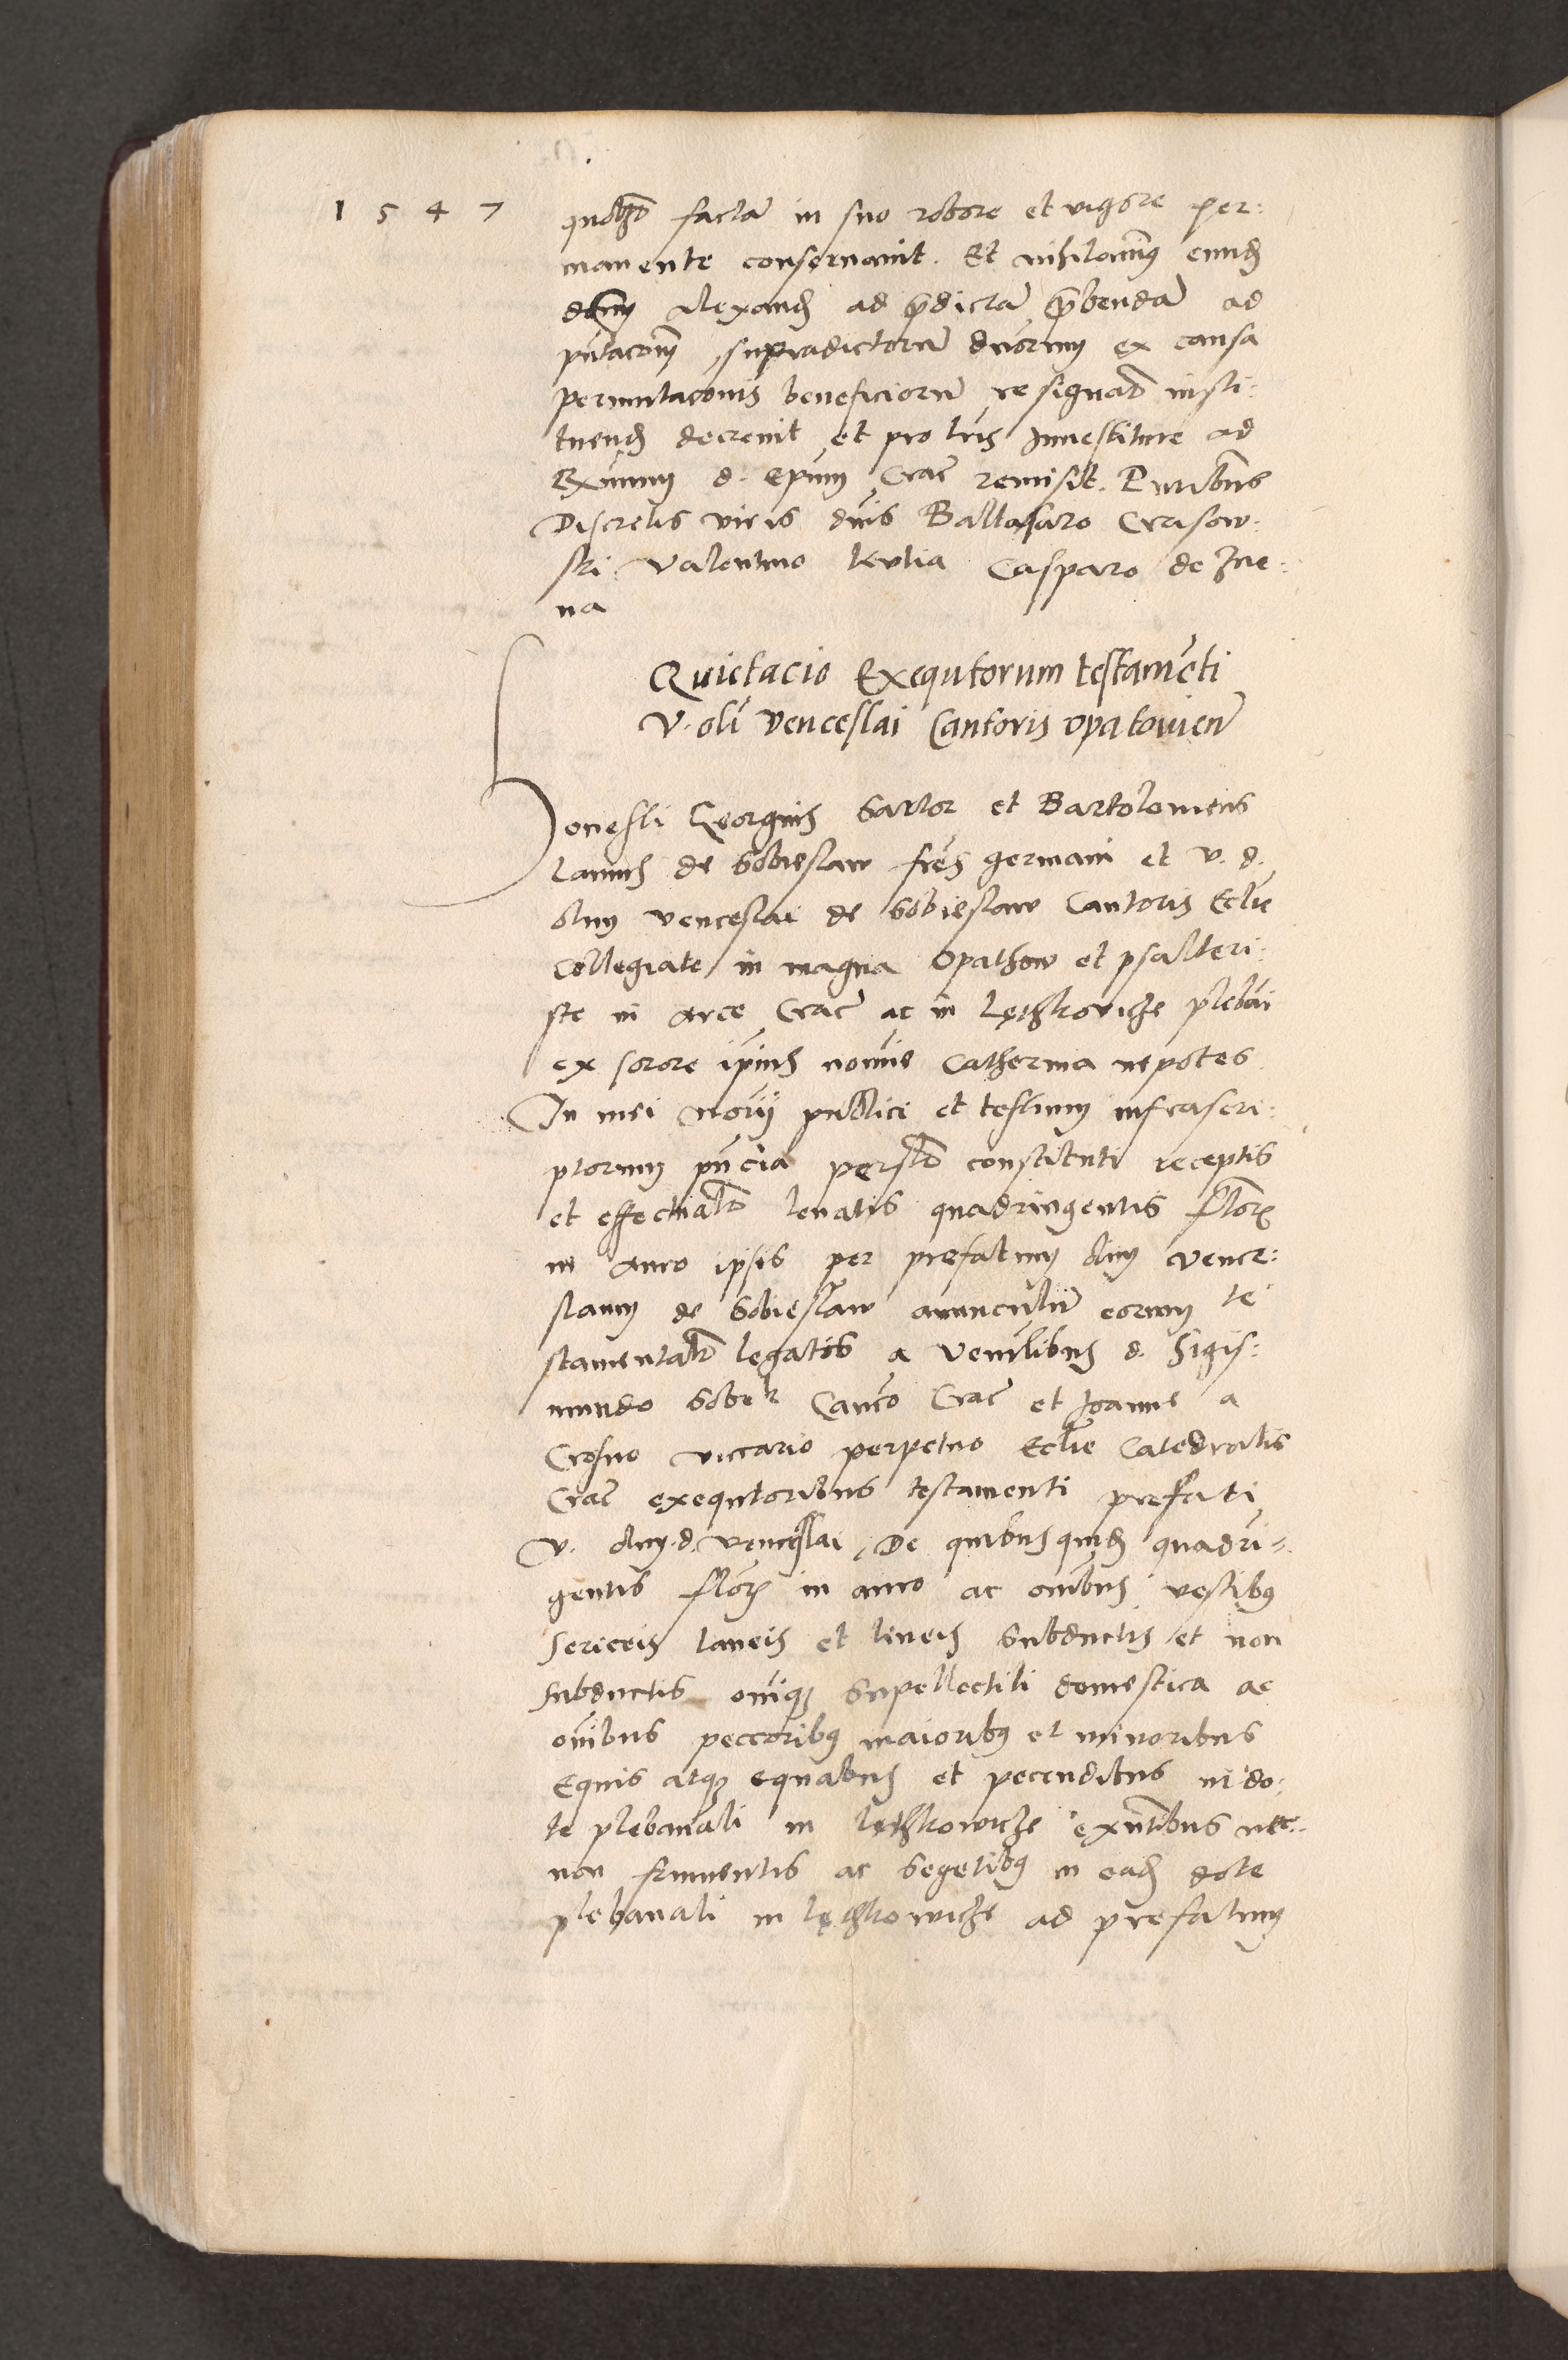 1547
quomodo factã in suo robore et vigore per:
manente conservavit. Et nihilomin9 eund
dnm Alexand ad p̃dictã p̃bendã ad
pñtacom̃ supradictorũ dnorum ex causa
permutaconis beneficiorũ resignad insti:
tuend decrevit et pro lris Investiture ad
Rx̃imum d. epum Crac̃ remisit. Pñtibus
Discretis viris dnis Baltasaro Crasow:
ski Valentino Casparo de
na
Quietacio Exequtorum testamẽti
V. oli Venceslai Cantoris opatovieñ
Honesti Georgius Sartor et Bartolomeus
Lanius de Sobieslaw frẽs germani et v. d.
olim Venceslai de Sobieslaw Cantoris Eclie
Collegiate in magna Opathow et psalteri:
ste in arce Crac̃ ac in Lęthkoviche plebãi
ex sorore ipsius nomine Catherina nepotes
In mei norij publici et testium infrascri:
ptorum pñcia personalr constituti receptis
et effectualr levatis quadringentis flor
in auro ipsis per prefatum olim Vence:
slaum de Sobieslaw avunculũ eorum te
stamentalr legatis a Venrlibus d. Sigis:
mundo Sober Canco Crac̃ et Joanne a
Crosno viccario perpetuo Eclie Catedralis
Crac̃ exequtoribus testamenti preffati
v. olim d. Venceslai, De quibusquid quadri=
gentis flor in auro ac oñibus vestibus
sericeis laneis et lineis subductis et non
subductis oñique supellectili domestica ac
oñibus peccoribus maioribus et minoribus
Equis atque equabus et pecudibus in do:
te plebanali in Lęthkowiche exñtibus nec:
non frumentis ac segetibus in ead dote
plebanali in Lęthkowiche ad prefatum